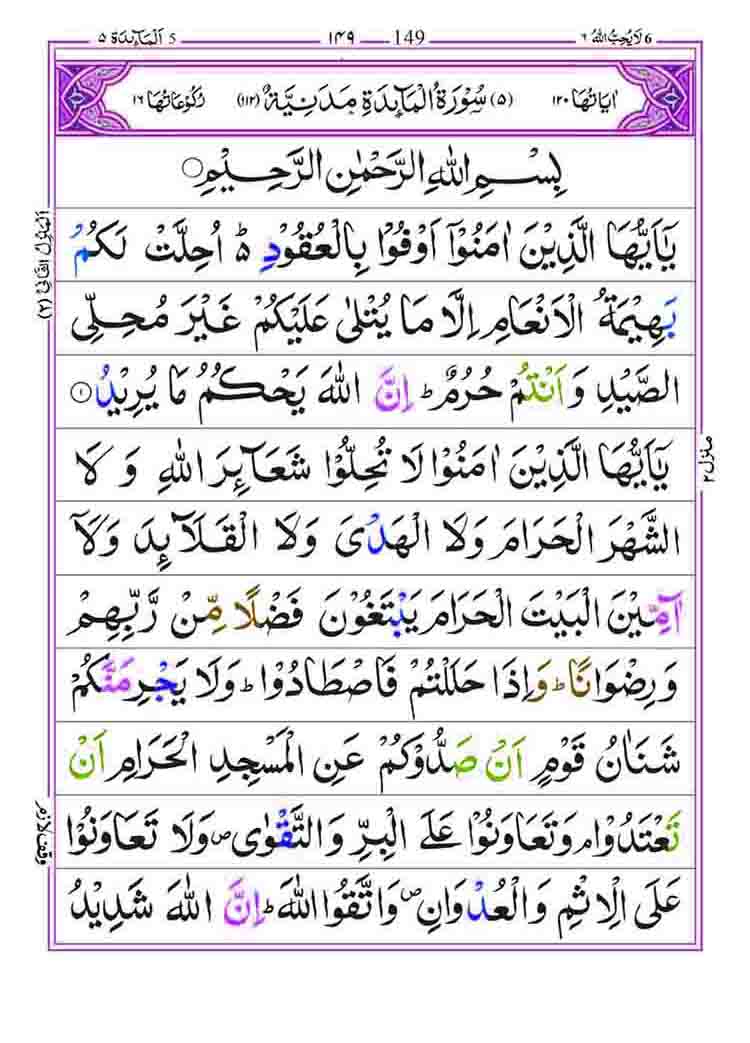 6 لَا يُحِبُّ اللّٰهُ ٦ 149 ١٤٩ 5 اَلْمَآئِدَة ٥
اٰيَاتُهَا ١٢٠ (٥) سُوْرَةُ الْمَآئِدَةِ مَدَنِيَّةٌ (١١٢) رُكُوْعَاتُهَا ١٦
بِسْمِ اللّٰهِ الرَّحْمٰنِ الرَّحِيْمِ ۝
يٰٓاَيُّهَا الَّذِيْنَ اٰمَنُوْٓا اَوْفُوْا بِالْعُقُوْدِ ؕ اُحِلَّتْ لَكُمْ
بَهِيْمَةُ الْاَنْعَامِ اِلَّا مَا يُتْلٰى عَلَيْكُمْ غَيْرَ مُحِلِّى
الصَّيْدِ وَ اَنْتُمْ حُرُمٌ ؕ اِنَّ اللّٰهَ يَحْكُمُ مَا يُرِيْدُ ۝١
يٰٓاَيُّهَا الَّذِيْنَ اٰمَنُوْا لَا تُحِلُّوْا شَعَآئِرَ اللّٰهِ وَ لَا
الشَّهْرَ الْحَرَامَ وَلَا الْهَدْىَ وَلَا الْقَلَآئِدَ وَلَآ
آٰمِّيْنَ الْبَيْتَ الْحَرَامَ يَبْتَغُوْنَ فَضْلًا مِّنْ رَّبِّهِمْ
وَ رِضْوَانًا ؕ وَاِذَا حَلَلْتُمْ فَاصْطَادُوْا ؕ وَلَا يَجْرِمَنَّكُمْ
شَنَاٰنُ قَوْمٍ اَنْ صَدُّوْكُمْ عَنِ الْمَسْجِدِ الْحَرَامِ اَنْ
تَعْتَدُوْا ۘ وَتَعَاوَنُوْا عَلَى الْبِرِّ وَالتَّقْوٰى ۪ وَلَا تَعَاوَنُوْا
عَلَى الْاِثْمِ وَالْعُدْوَانِ ۪ وَاتَّقُوا اللّٰهَ ؕ اِنَّ اللّٰهَ شَدِيْدُ
اَلْمَنْزِلُ الثَّانِىْ (٢)
منزل ٢
وقف لازم